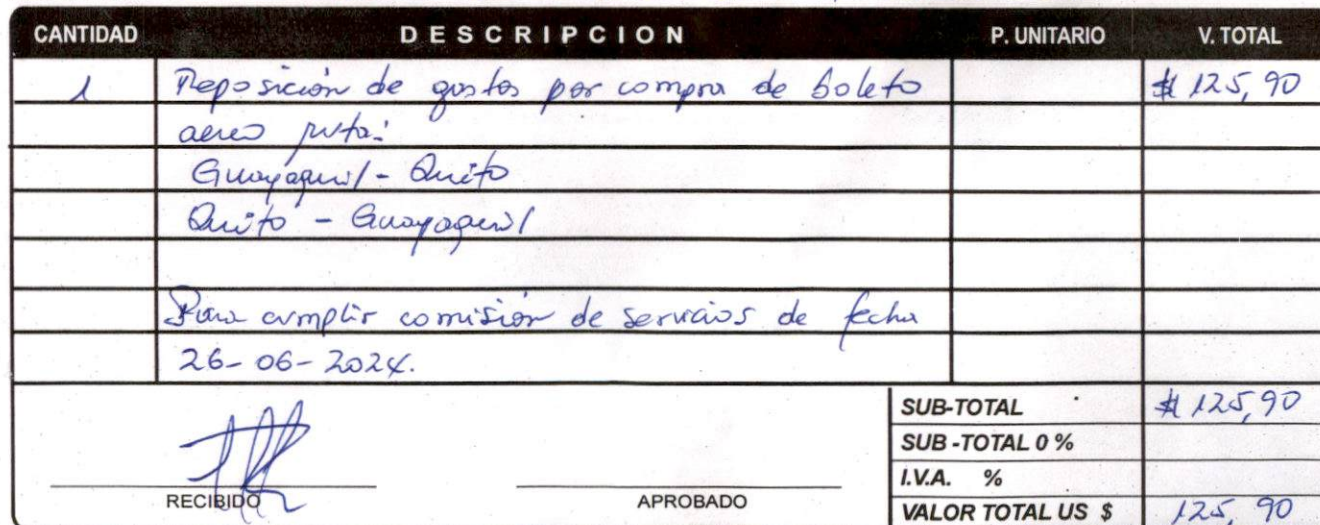 CANTIDAD DESCRIPCION P. UNITARIO V. TOTAL
1 Reposición de gastos por compra de boleto $ 125,90
aereo ruta:
Guayaquil - Quito
Quito - Guayaquil
Para cumplir comisión de servicios de fecha
26-06-2024.
SUB-TOTAL $ 125,90
SUB-TOTAL 0 %
I.V.A. %
RECIBIDO APROBADO VALOR TOTAL US $ 125,90